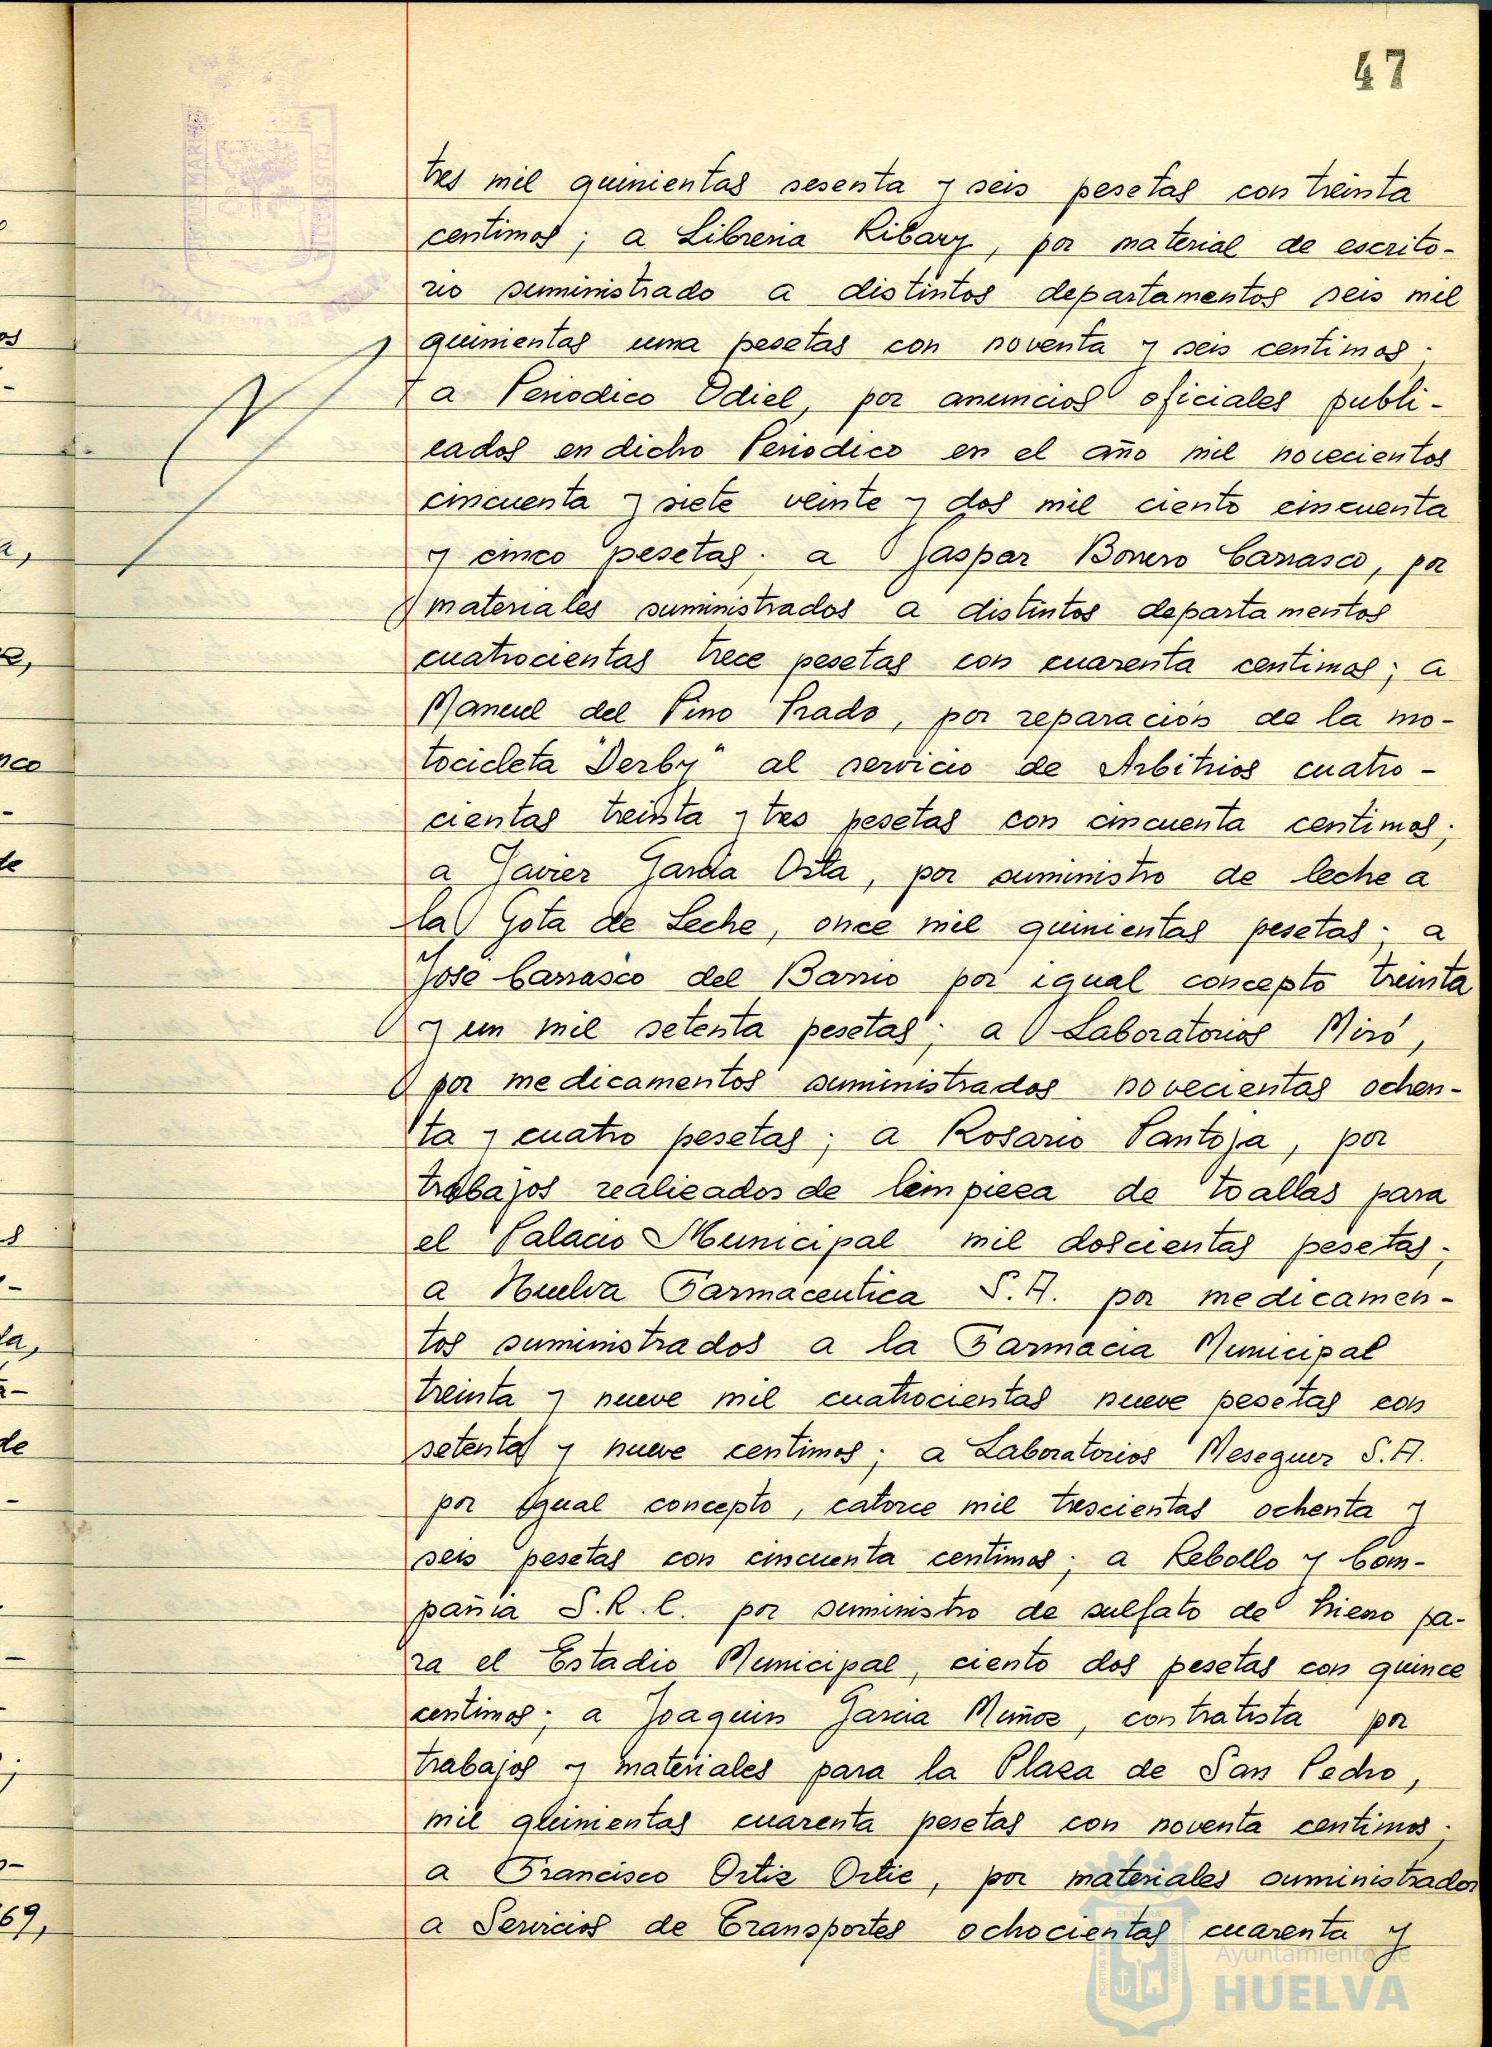 47
tres mil quinientas sesenta y seis pesetas con treinta
centimos; a Libreria Ribary, por material de escrito-
rio suministrado a distintos departamentos seis mil
quinientas una pesetas con noventa y seis centimos;
a Periodico Odiel, por anuncios oficiales publi-
cados en dicho Periodico en el año mil novecientos
cincuenta y siete veinte y dos mil ciento cincuenta
y cinco pesetas; a Gaspar Borrero Carrasco, por
materiales suministrados a distintos departamentos
cuatrocientas trece pesetas con cuarenta centimos; a
Manuel del Pino Prado, por reparación de la mo-
tocicleta "Derby" al servicio de Arbitrios cuatro-
cientas treinta y tres pesetas con cincuenta centimos;
a Javier Garcia Orta, por suministro de leche a
la Gota de Leche, once mil quinientas pesetas; a
Jose Carrasco del Barrio por igual concepto treinta
y un mil setenta pesetas; a Laboratorios Miró,
por medicamentos suministrados novecientas ochen-
ta y cuatro pesetas; a Rosario Pantoja, por
trabajos realizados de limpieza de toallas para
el Palacio Municipal mil doscientas pesetas;
a Huelva Farmaceutica S.A. por medicamen-
tos suministrados a la Farmacia Municipal
treinta y nueve mil cuatrocientas nueve pesetas con
setenta y nueve centimos; a Laboratorios Meseguer S.A.
por igual concepto, catorce mil trescientas ochenta y
seis pesetas con cincuenta centimos; a Rebollo y Com-
pañia S.R.C. por suministro de sulfato de hierro pa-
ra el Estadio Municipal, ciento dos pesetas con quince
centimos; a Joaquin Garcia Muñoz, contratista por
trabajos y materiales para la Plaza de San Pedro,
mil quinientas cuarenta pesetas con noventa centimos;
a Francisco Ortiz Ortiz, por materiales suministrados
a Servicios de Transportes ochocientas cuarenta y
Ayuntamiento de
HUELVA